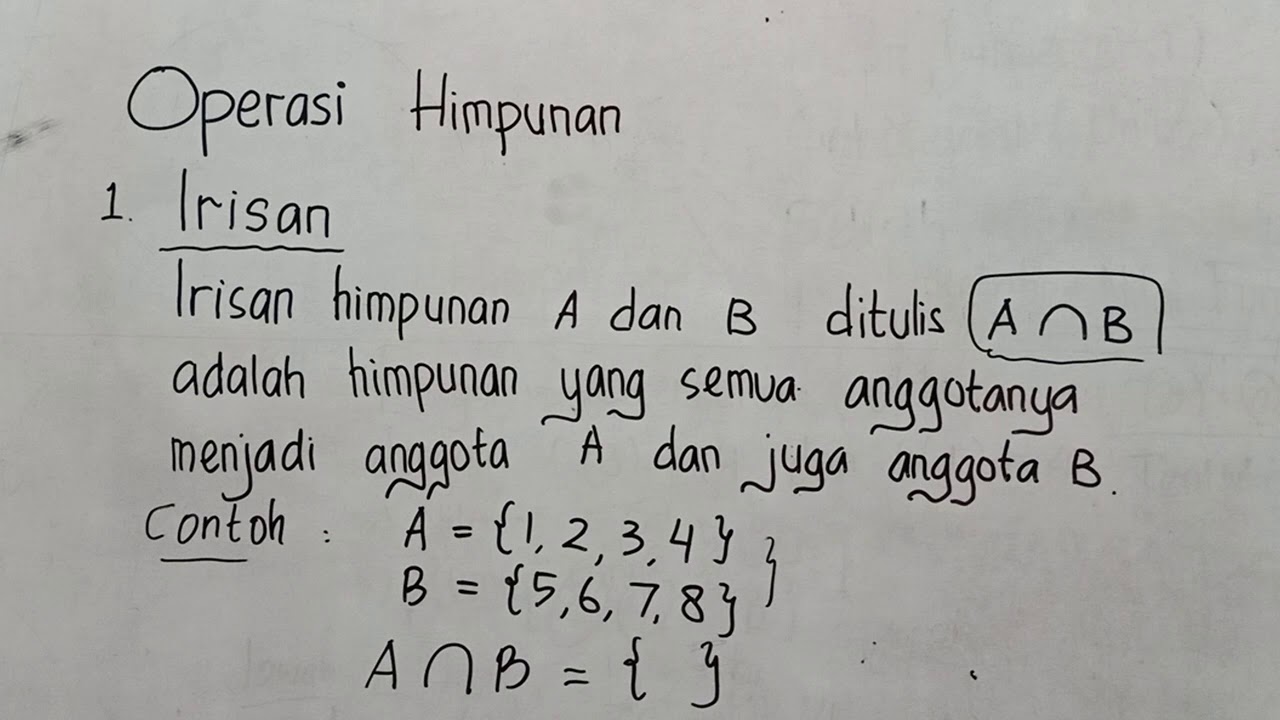 Operasi Himpunan
1. Irisan
Irisan himpunan A dan B ditulis A ∩ B
adalah himpunan yang semua anggotanya
menjadi anggota A dan juga anggota B.
Contoh : A = {1, 2, 3, 4}
B = {5, 6, 7, 8}
A ∩ B = { }